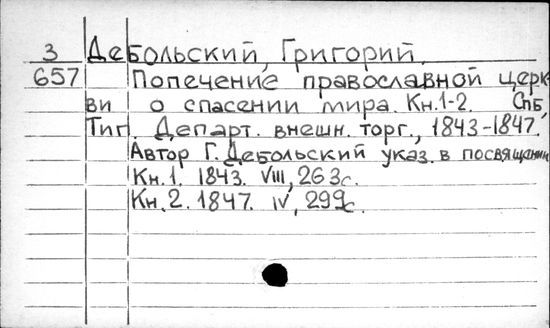 3 Дебольский, Григорий.
657 Попечение православной церк-
ви о спасении мира. Кн.1-2. Спб,
Тип. Департ. внешн. торг., 1843-1847.
Автор Г. Дебольский указ. в посвящении
Кн.1. 1843. VIII, 263с.
Кн.2. 1847. IV, 299с.